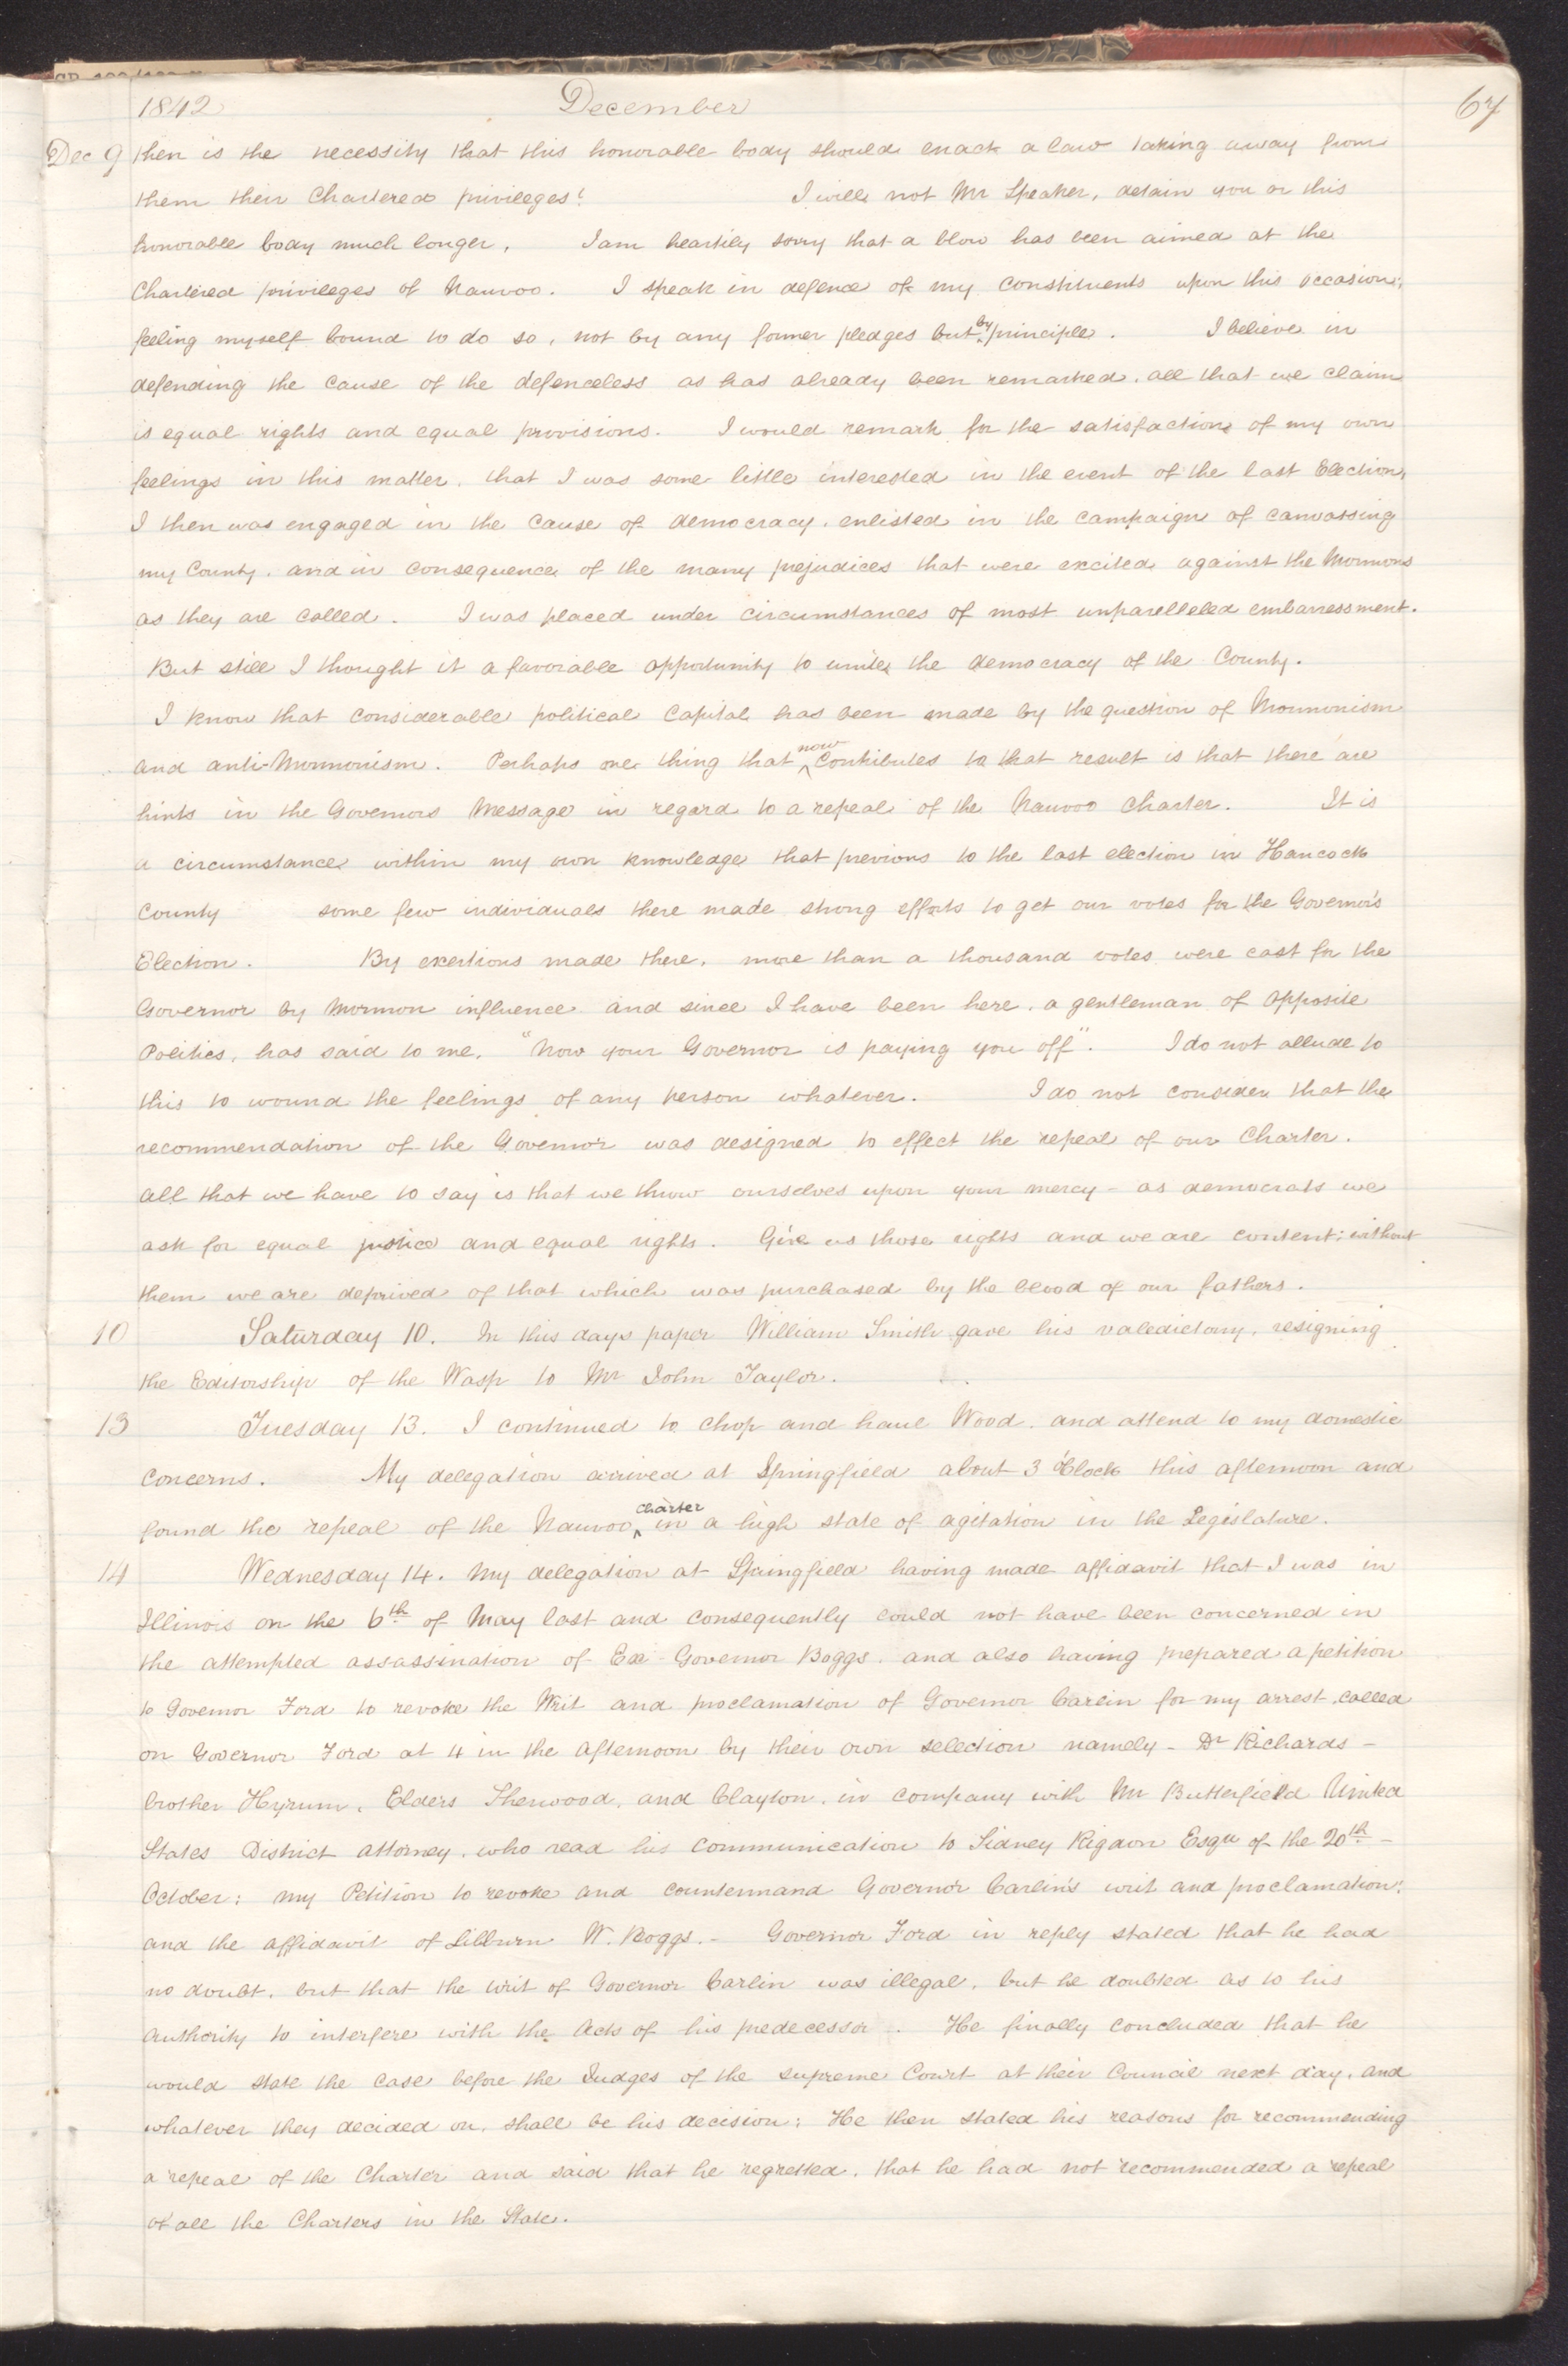 1842 December 67
Dec 9 then is the necessity that this honorable body should enact a law taking away from
them their Chartered privileges? I will not Mr Speaker, detain you or this
honorable body much longer, I am heartily sorry that a blow has been aimed at the
Chartered privileges of Nauvoo. I speak in defence of my constituents upon this occasion;
feeling myself bound to do so, not by any former pledges but by principle. I believe in
defending the cause of the defenceless as has already been remarked, all that we claim
is equal rights and equal provisions. I would remark for the satisfaction of my own
feelings in this matter, that I was some little interested in the event of the last Election,
I then was engaged in the cause of democracy, enlisted in the campaign of canvassing
my County, and in consequence of the many prejudices that were excited against the Mormons
as they are called. I was placed under circumstances of most unparelleled embarressment.
But still I thought it a favorable opportunity to unite the democracy of the County.
I know that considerable political capital has been made by the question of Mormonism
and anti-Mormonism. Perhaps one thing that now contributes to that result is that there are
hints in the Governors Message in regard to a repeal of the Nauvoo Charter. It is
a circumstance within my own knowledge that previous to the last election in Hancock
County some few individuals there made strong efforts to get our votes for the Governor's
Election. By exertions made there, more than a thousand votes were cast for the
Governor by Mormon influence and since I have been here, a gentleman of opposite
Politics, has said to me, "Now your Governor is paying you off". I do not allude to
this to wound the feelings of any person whatever. I do not consider that the
recommendation of the Governor was designed to effect the repeal of our Charter.
All that we have to say is that we throw ourselves upon your mercy - as democrats we
ask for equal justice and equal rights. Give us those rights and we are content; without
them we are deprived of that which was purchased by the blood of our fathers.
10 Saturday 10. In this days paper William Smith gave his valedictory, resigning
the Editorship of the Wasp to Mr John Taylor.
13 Tuesday 13. I continued to chop and haul Wood, and attend to my domestic
concerns. My delegation arrived at Springfield about 3 o'Clock this afternoon and
found the repeal of the Nauvoo charter in a high state of agitation in the Legislature.
14 Wednesday 14. My delegation at Springfield having made affidavit that I was in
Illinois on the 6th of May last and consequently could not have been concerned in
the attempted assassination of Ex-Governor Boggs, and also having prepared a petition
to Governor Ford to revoke the Writ and proclamation of Governor Carlin for my arrest, called
on Governor Ford at 4 in the afternoon by their own selection namely - Dr Richards -
brother Hyrum, Elders Sherwood, and Clayton, in company with Mr Butterfield United
States District attorney, who read his communication to Sidney Rigdon Esqr of the 20th -
October; my Petition to revoke and countermand Governor Carlin's writ and proclamation;
and the affidavit of Lilburn W. Boggs. - Governor Ford in reply stated that he had
no doubt, but that the writ of Governor Carlin was illegal, but he doubted as to his
authority to interfere with the acts of his predecessor. He finally concluded that he
would state the case before the Judges of the supreme Court at their Council next day, and
whatever they decided on, shall be his decision; He then stated his reasons for recommending
a repeal of the Charter and said that he regretted, that he had not recommended a repeal
of all the Charters in the State.